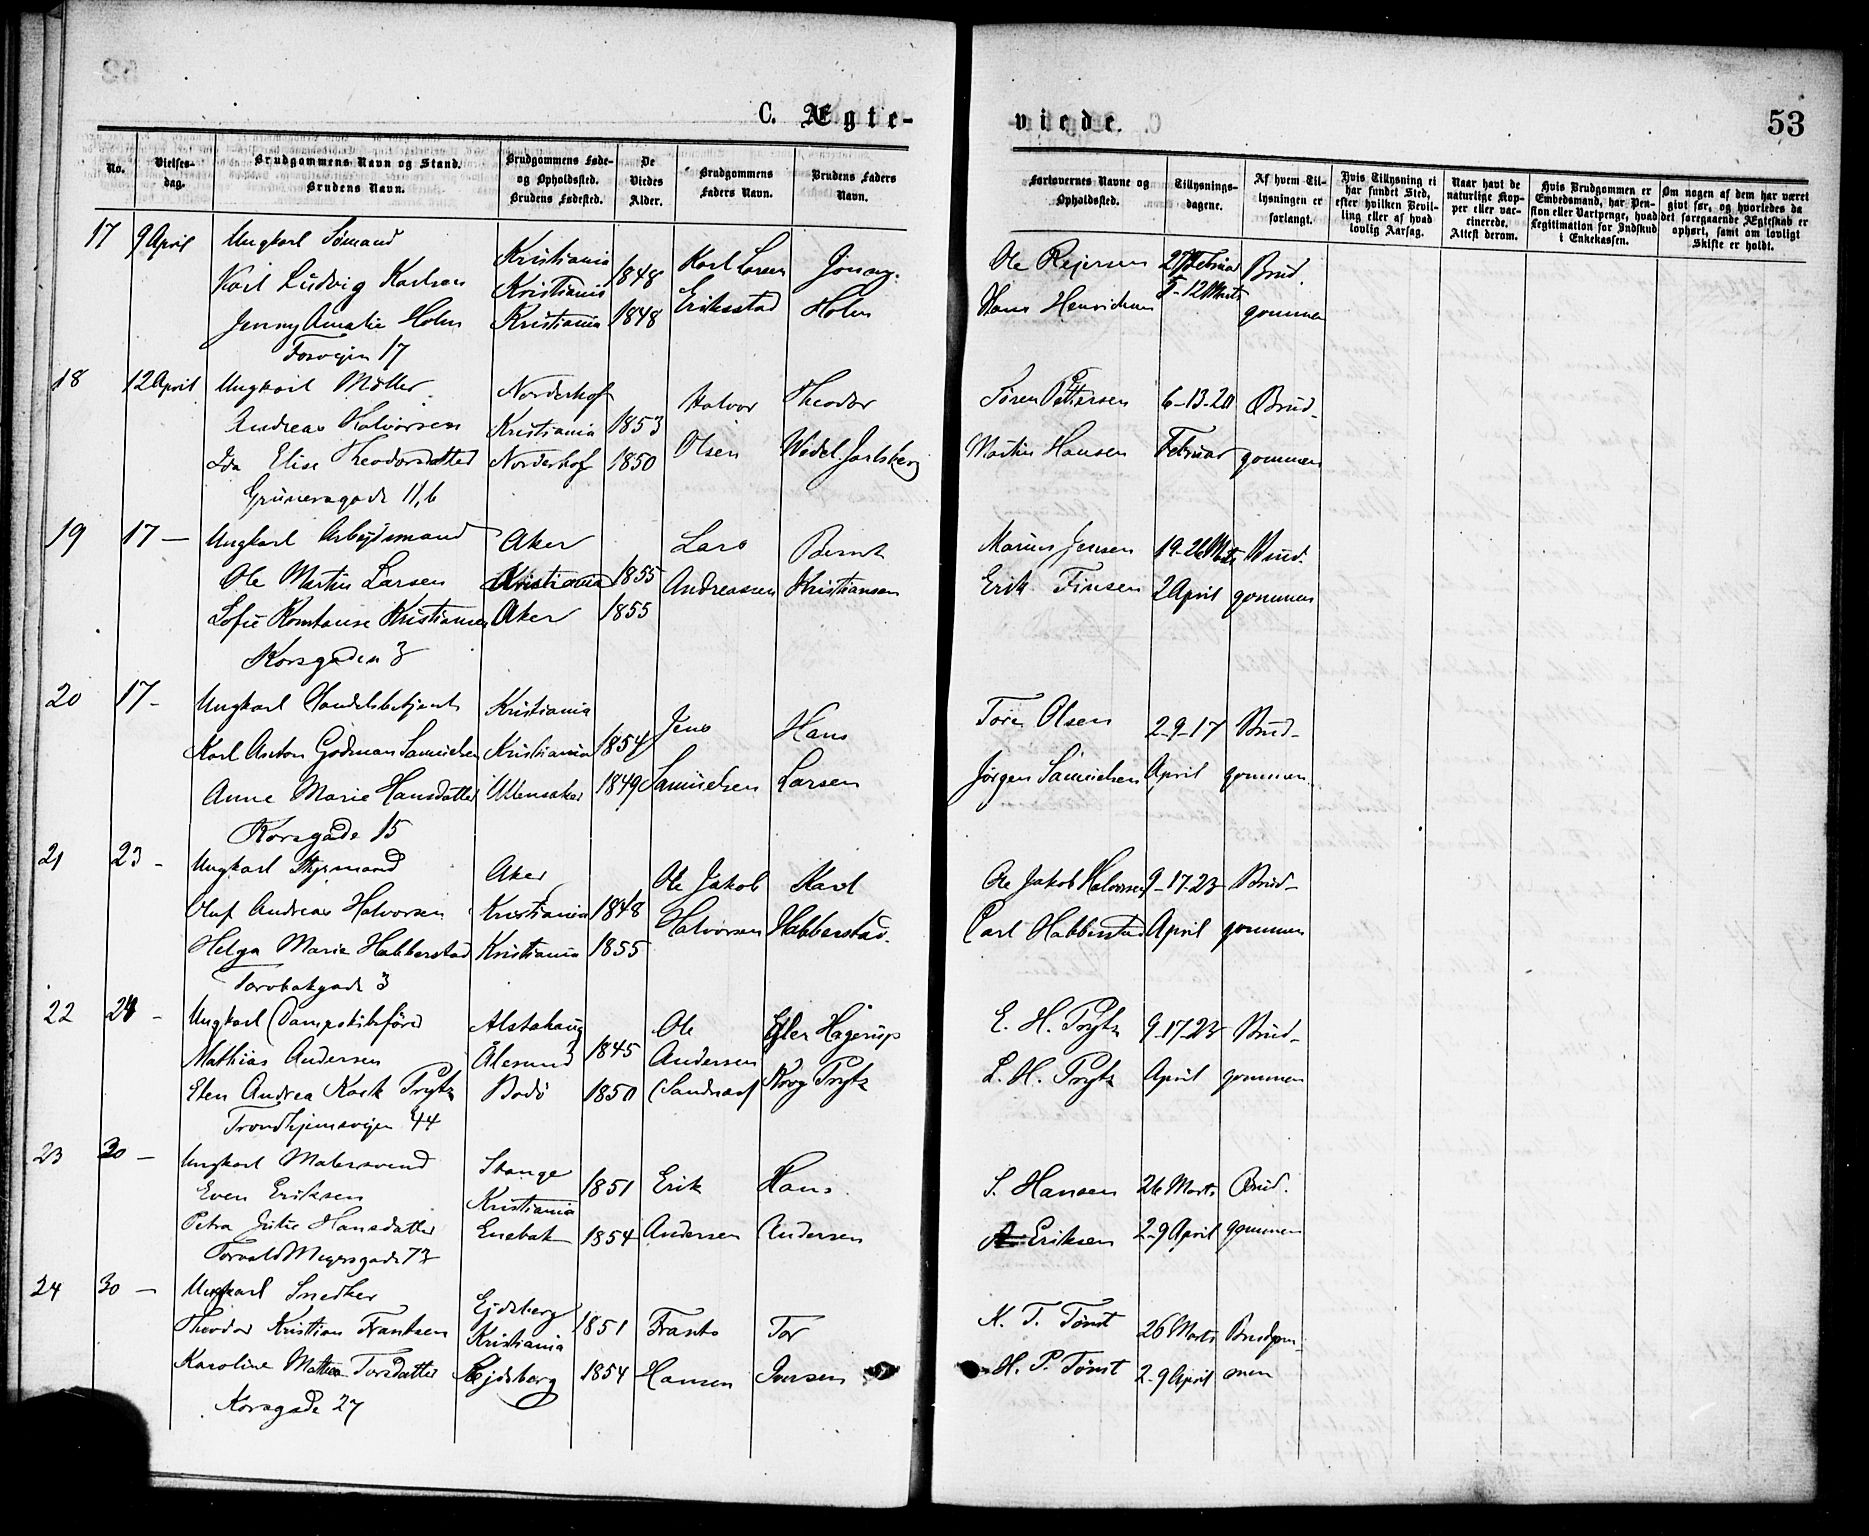 C. Ægte-
No.
Vielses-
dag.
Brudgommens Navn og Stand.
Brudens Navn.
Brudgommens Føde-
og Opholdssted.
Brudens Fødested.
De
Viedes
Alder.
Brudgommens
Faders Navn.
Brudens Faders
Navn.
17 9 April Ungkarl Sømand
Karl Ludvig Karlsen Kristiania Kristiania 1848 Karl Larsen
Jenny Amalie Holm Kristiania 1848 Eriksstad Holm
Fosvejen 17
18 12 April Ungkarl Møller Norderhof Halvor Theodor
Andreas Halvorsen Kristiania 1853
Ida Elise Theodorsdatter Norderhof 1850 Olsen Wedel Jarlsberg
Grünersgade 11, b
19 17 — Ungkarl Arbejdsmand Aker Lars Bernt
Ole Martin Larsen Kristiania 1855 Andreassen Kristiansen
Sofie Konstanse Kristiansen Aker 1855
Korsgaden 3
20 17 - Ungkarl Handelsbetjent Kristiania Jens Hans
Karl Anton Godman Samuelsen Kristiania 1854
Anne Marie Hansdatter Ullensaker 1849 Samuelsen Larsen
Korsgade 15
21 23 - Ungkarl Styrmand Aker Ole Jakob Karl
Oluf Andreas Halvorsen Kristiania 1848 Halvorsen Habberstad.
Helga Marie Habberstad Kristiania 1855
22 24 - Ungkarl Dampskibsfører Alstahaug Ole Hagerup
Mathias Andersen Ålesund 1845 Andersen
Elen Andrea Kask Prytz Bodö 1850 Prytz
Trondhjemsvejen 44
23 30 — Ungkarl Malersvend Stange
Even Eriksen Kristiania 1851 Erik Hans
Petra Julie Hansdatter Enebak 1854 Andersen Andersen
Torvald Meyersgade 73
24 30 — Ungkarl Snedker Ejdsberg
Theodor Kristian Frantsen Kristiania 1851 Frants Tor
Karoline Mathea Torsdatter Ejdsberg 1854 Hansen Iversen
Korsgade 27
viede.
53
Forlovernes Navne og
Opholdssted.
Tillysnings-
dagene.
Af hvem Til-
lysningen er
forlangt.
Hvis Tillysning ei
har fundet Sted,
efter hvilken Bevil-
ling eller af hvad
lovlig Aarsag.
Naar havt de
naturlige Kop-
per eller vac-
cinerede.
Attest derom.
Hvis Brudgommen er
Embedsmand, har Pen-
sion eller Vartpenge, hvad
Legitimation for Indskud
i Enkekassen.
Om nogen af dem har været
givt før, og hvorledes da
det foregaaende Ægteskab er
ophørt, samt om lovligt
Skifte er holdt.
Ole Rejersen 27 Februar Brud-
Hans Henriksen 5-12 Marts gommen
Søren Pettersen 6-13-20 Brud-
Martin Hansen Februar gommen
Marius Jensen 19-26 Marts Brud-
Erik Finsen 2 April gommen
Tore Olsen 2-9-17 Brud-
Jörgen Samuelsen April gommen
Ole Jakob Halvorsen 9-17-23 Brud-
Carl Habberstad April gommen
E. H. Prytz 9-17-23 Brud-
L. H. Prytz April gommen
S. Hansen 26 Marts Brud-
A. Eriksen 2-9 April gommen
K. T. Tömt 26 Marts Brudgom-
H. P. Tömt 2-9 April men